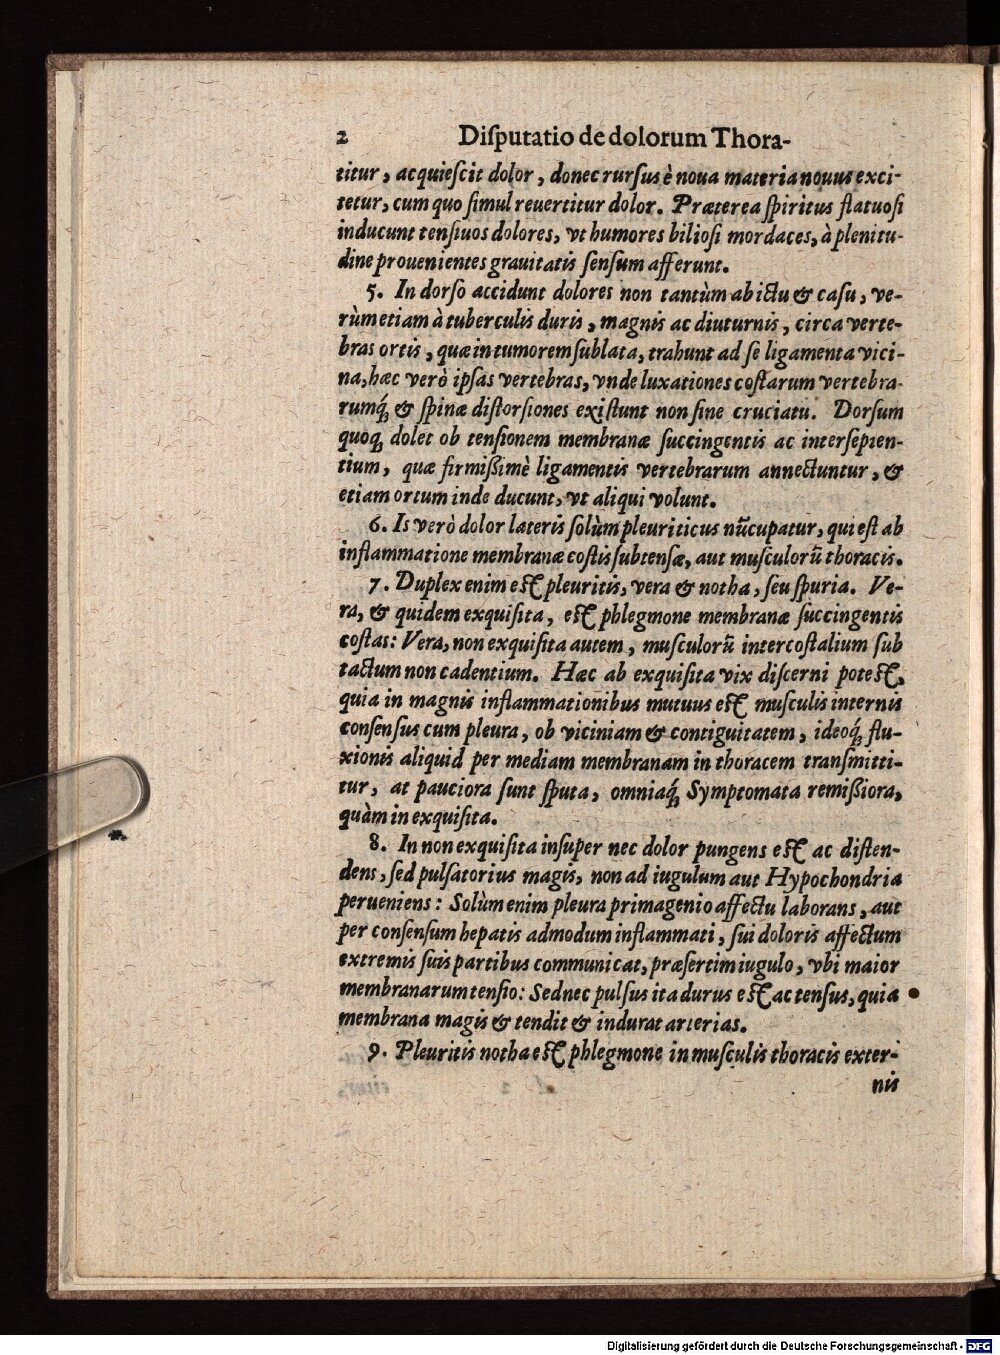 2 Diſputatio de dolorum Thora-
titur, acquieſcit dolor, donec rurſus è noua materia nouus exci-
tetur, cum quo ſimul reuertitur dolor. Præterea ſpiritus flatuoſi
inducunt tenſiuos dolores, vt humores bilioſi mordaces, à plenitu-
dine prouenientes grauitatis ſenſum afferunt.
5. In dorſo accidunt dolores non tantùm ab ictu & caſu, ve-
rùm etiam à tuberculis duris, magnis ac diuturnis, circa verte-
bras ortis, quæ in tumorem ſublata, trahunt ad ſe ligamenta vici-
na, hæc verò ipſas vertebras, vnde luxationes coſtarum vertebra-
rumq́; & ſpinæ diſtorſiones exiſtunt non ſine cruciatu. Dorſum
quoq; dolet ob tenſionem membranæ ſuccingentis ac interſepien-
tium, quæ firmißimè ligamentis vertebrarum annectuntur, &
etiam ortum inde ducunt, vt aliqui volunt.
6. Is verò dolor lateris ſolùm pleuriticus nūcupatur, qui eſt ab
inflammatione membranæ coſtis ſubtenſæ, aut muſculorũ thoracis.
7. Duplex enim eſt pleuritis, vera & notha, ſeu ſpuria. Ve-
ra, & quidem exquiſita, eſt phlegmone membranæ ſuccingentis
coſtas: Vera, non exquiſita autem, muſculorũ intercoſtalium ſub
tactum non cadentium. Hæc ab exquiſita vix diſcerni poteſt,
quia in magnis inflammationibus mutuus eſt muſculis internis
conſenſus cum pleura, ob viciniam & contiguitatem, ideoq́; flu-
xionis aliquid per mediam membranam in thoracem tranſmitti-
tur, at pauciora ſunt ſputa, omniaq́; Symptomata remißiora,
quàm in exquiſita.
8. In non exquiſita inſuper nec dolor pungens eſt ac diſten-
dens, ſed pulſatorius magis, non ad iugulum aut Hypochondria
perueniens: Solùm enim pleura primagenio affectu laborans, aut
per conſenſum hepatis admodum inflammati, ſui doloris affectum
extremis ſuis partibus communicat, præſertim iugulo, vbi maior
membranarum tenſio: Sed nec pulſus ita durus eſt ac tenſus, quia
membrana magis & tendit & indurat arterias.
9. Pleuritis notha eſt phlegmone in muſculis thoracis exter-
nis
Digitalisierung gefördert durch die Deutsche Forschungsgemeinschaft - DFG